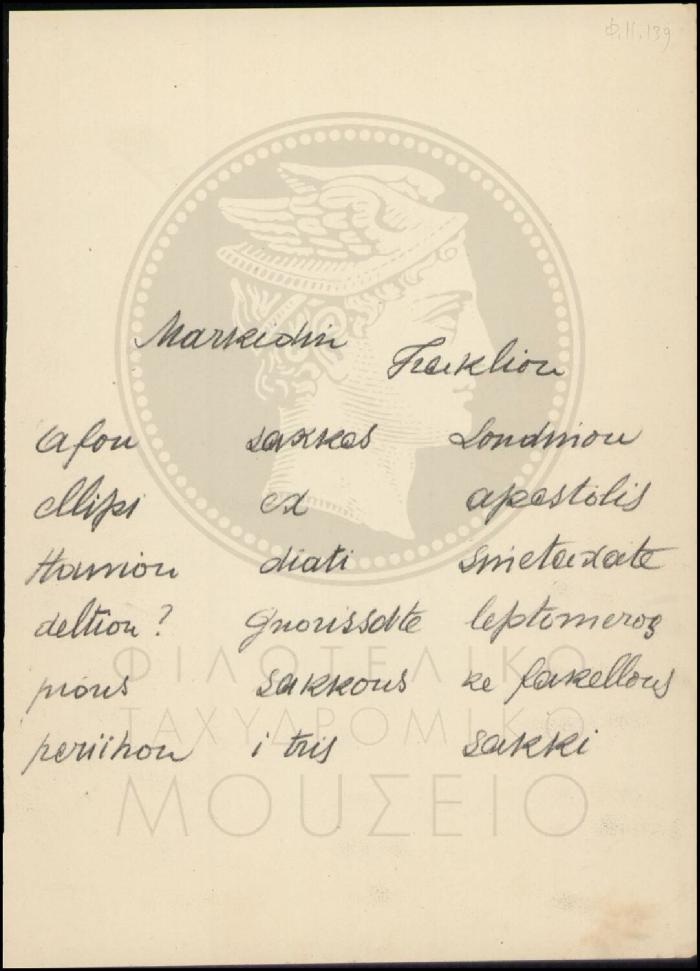 Φ.11.139
Markidin
Irakliou
afou sakkos Londinou
ellipi ex apostolis
Haniou diati sinetaxate
deltion? Gnorissate leptomeros
pious sakkous ke fakellous
periihon i tris sakki
ΦΙΛΟΤΕΛΙΚΟ
ΤΑΧΥΔΡΟΜΙΚΟ
ΜΟΥΣΕΙΟ